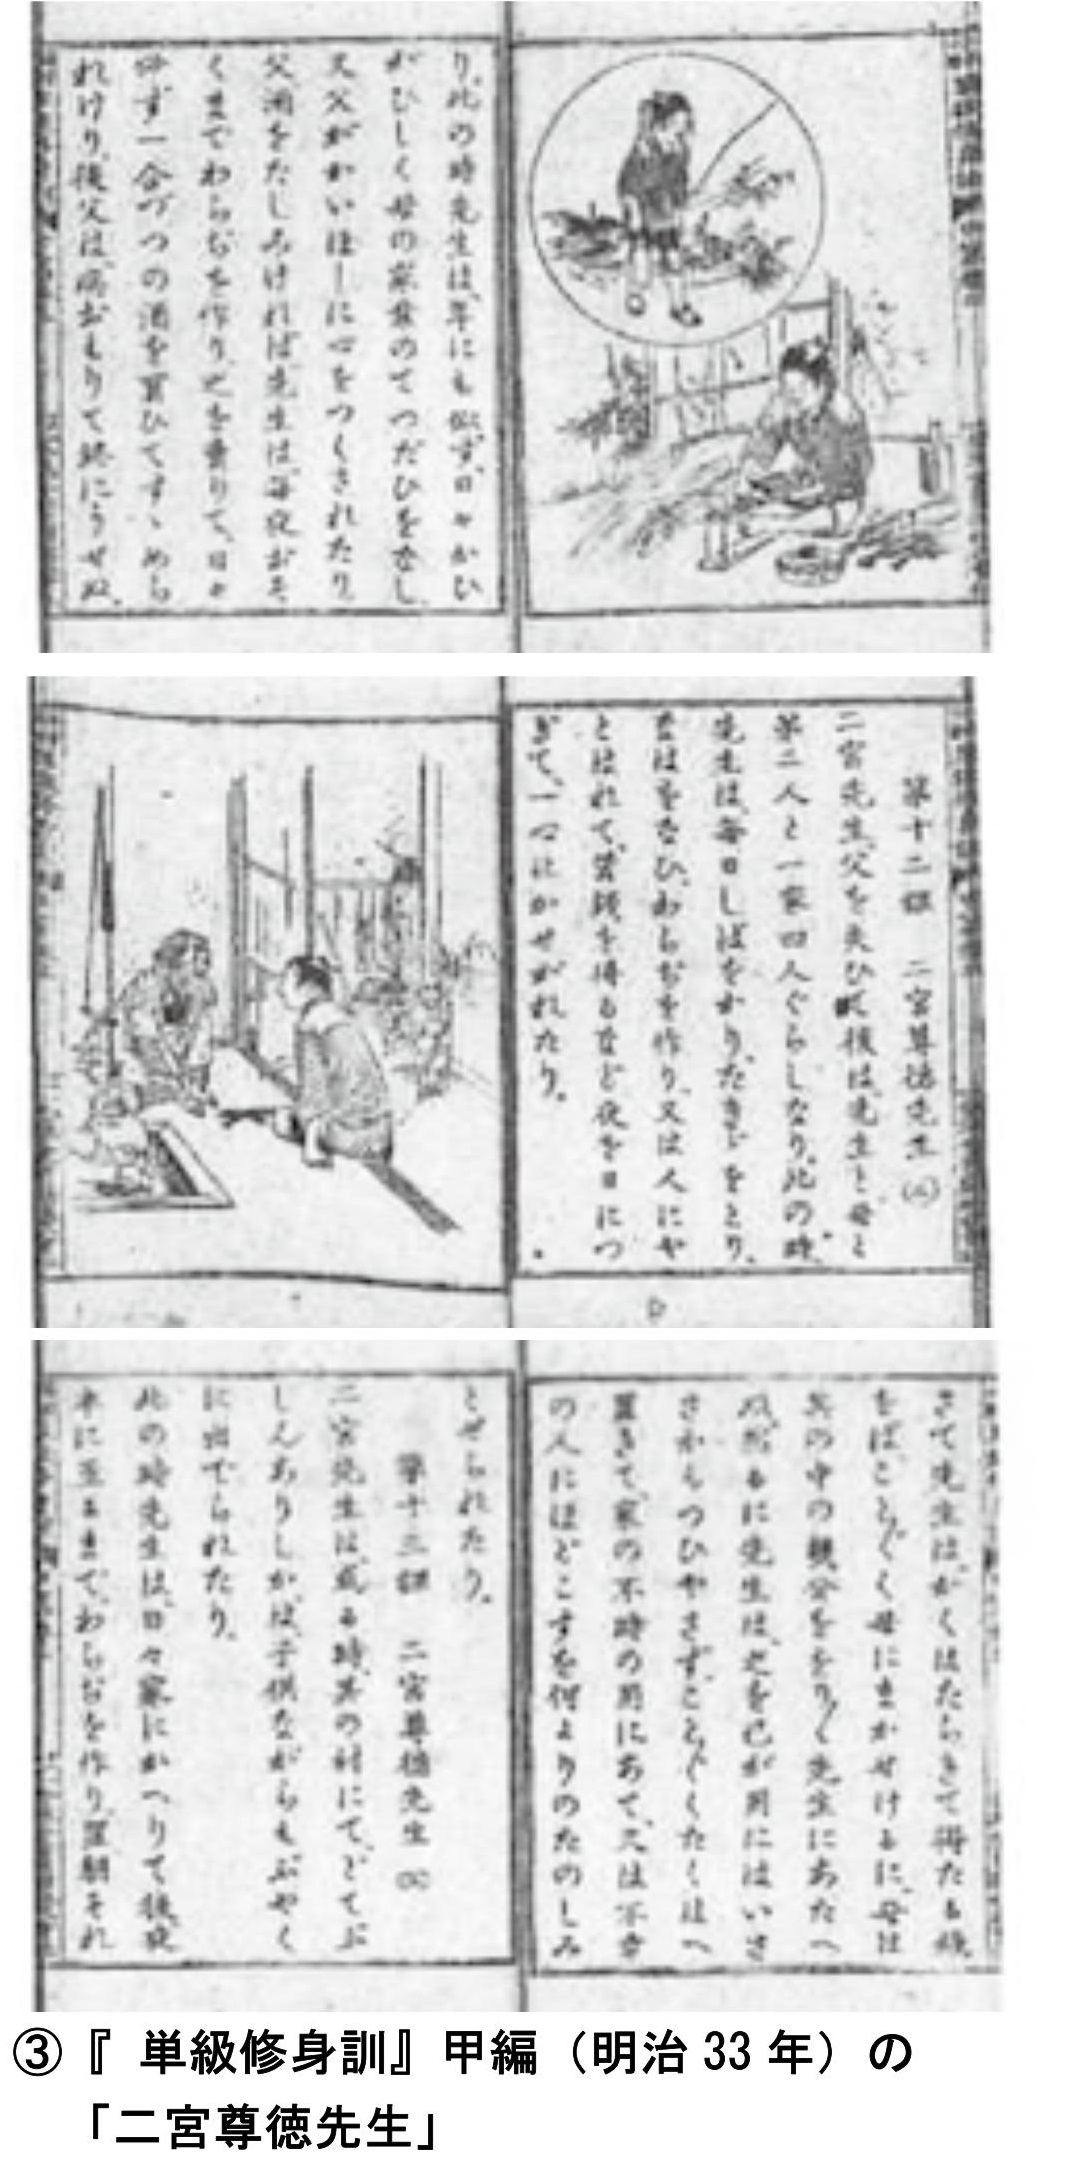 り。此の時先生は、年にも似ず、日々かひ
がひしく母の家業のてつだひをなし
又父がかいほーに心をつくされたり。
父酒をたしみければ、先生は、毎夜おそ
くまでわらぢを作り、之を賣りて、日々
一合づつの酒を買ひてすゝめら
れけり。後父は、病おもりて終にうせぬ。
第十二課　二宮尊徳先生
二宮先生、父を失ひて後は、先生と母と
弟二人と一家四人ぐらしなり。此の時、
先生は、毎日しばをかり、たきぎをとり、
なはをなひ、わらぢを作り、又は人にや
とはれて、賃錢を得るなど夜を日につ
ぎて、一心にかせがれたり。
さて先生は、かくはたらきて得たる錢
をば、ことごとく母にまかせけるに、母は
其の中の幾分ををりをり先生にあたへ
ぬ。然るに先生は、之を己が用にはいさ
さかもつひやさず、ことごとくたくはへ
置きて、家の不時の用にあて、又は不幸
の人にほどこすを何よりのたのしみ
とせられたり。
第十三課　二宮尊徳先生
二宮先生は、或る時、其の村にて、どてぶ
しんありしかば、子供ながらもぶやく
に出でられたり。
此の時先生は、日々家にかへりて後、夜
半に至るまで、わらぢを作り、翌朝それ
③『 単級修身訓』甲編（明治 33 年）の
「二宮尊徳先生」